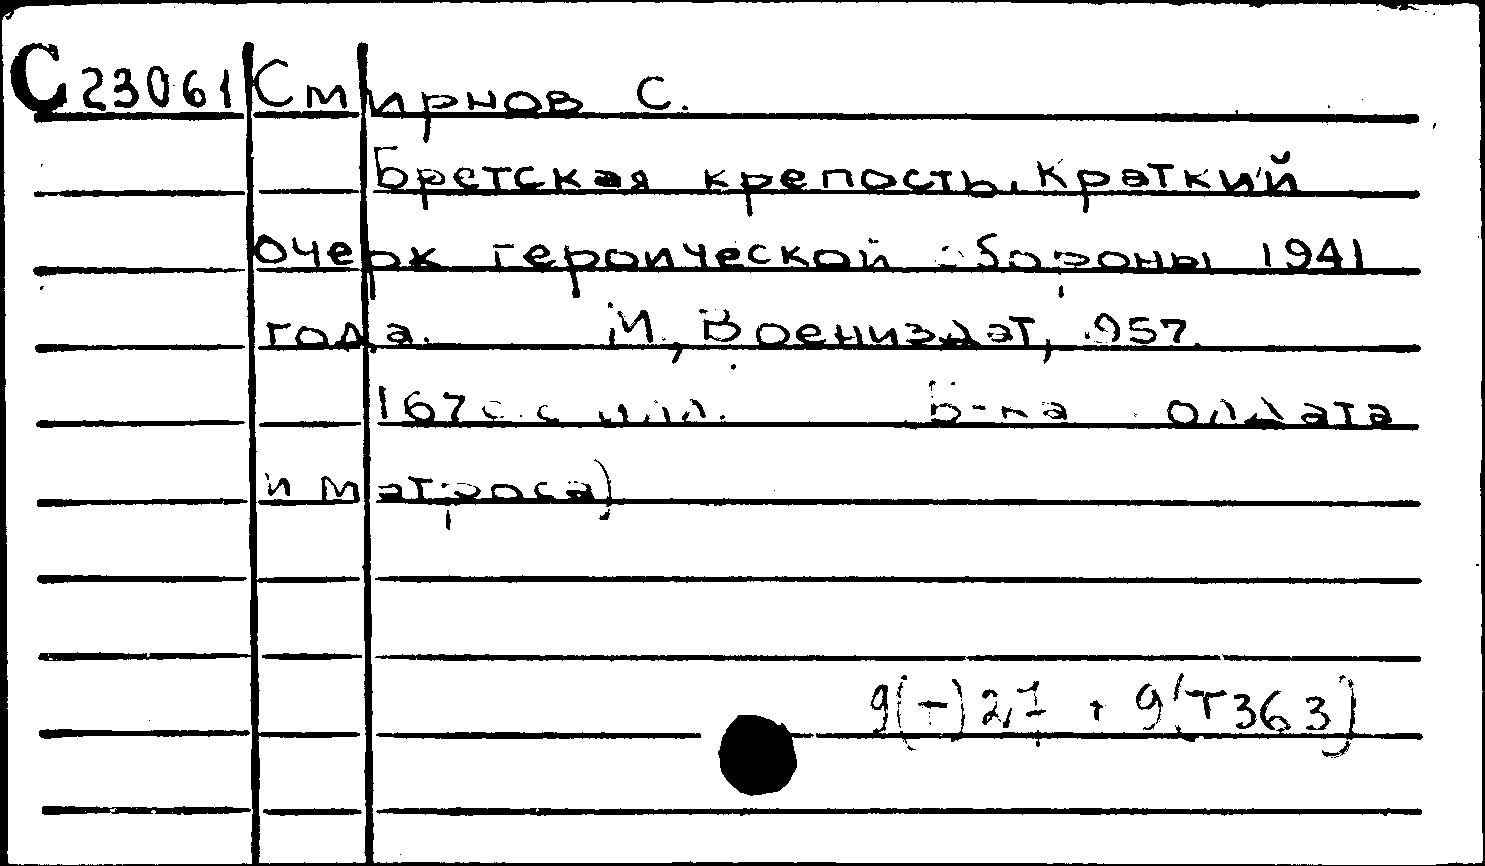 С 23061 Смирнов С.
Бретская крепость. Краткий
очерк героической обороны 1941
года. М., Воениздат, 1957.
167с. с илл. Б-ка солдата
и матроса)
9(-)2,7 + 9(Т363)